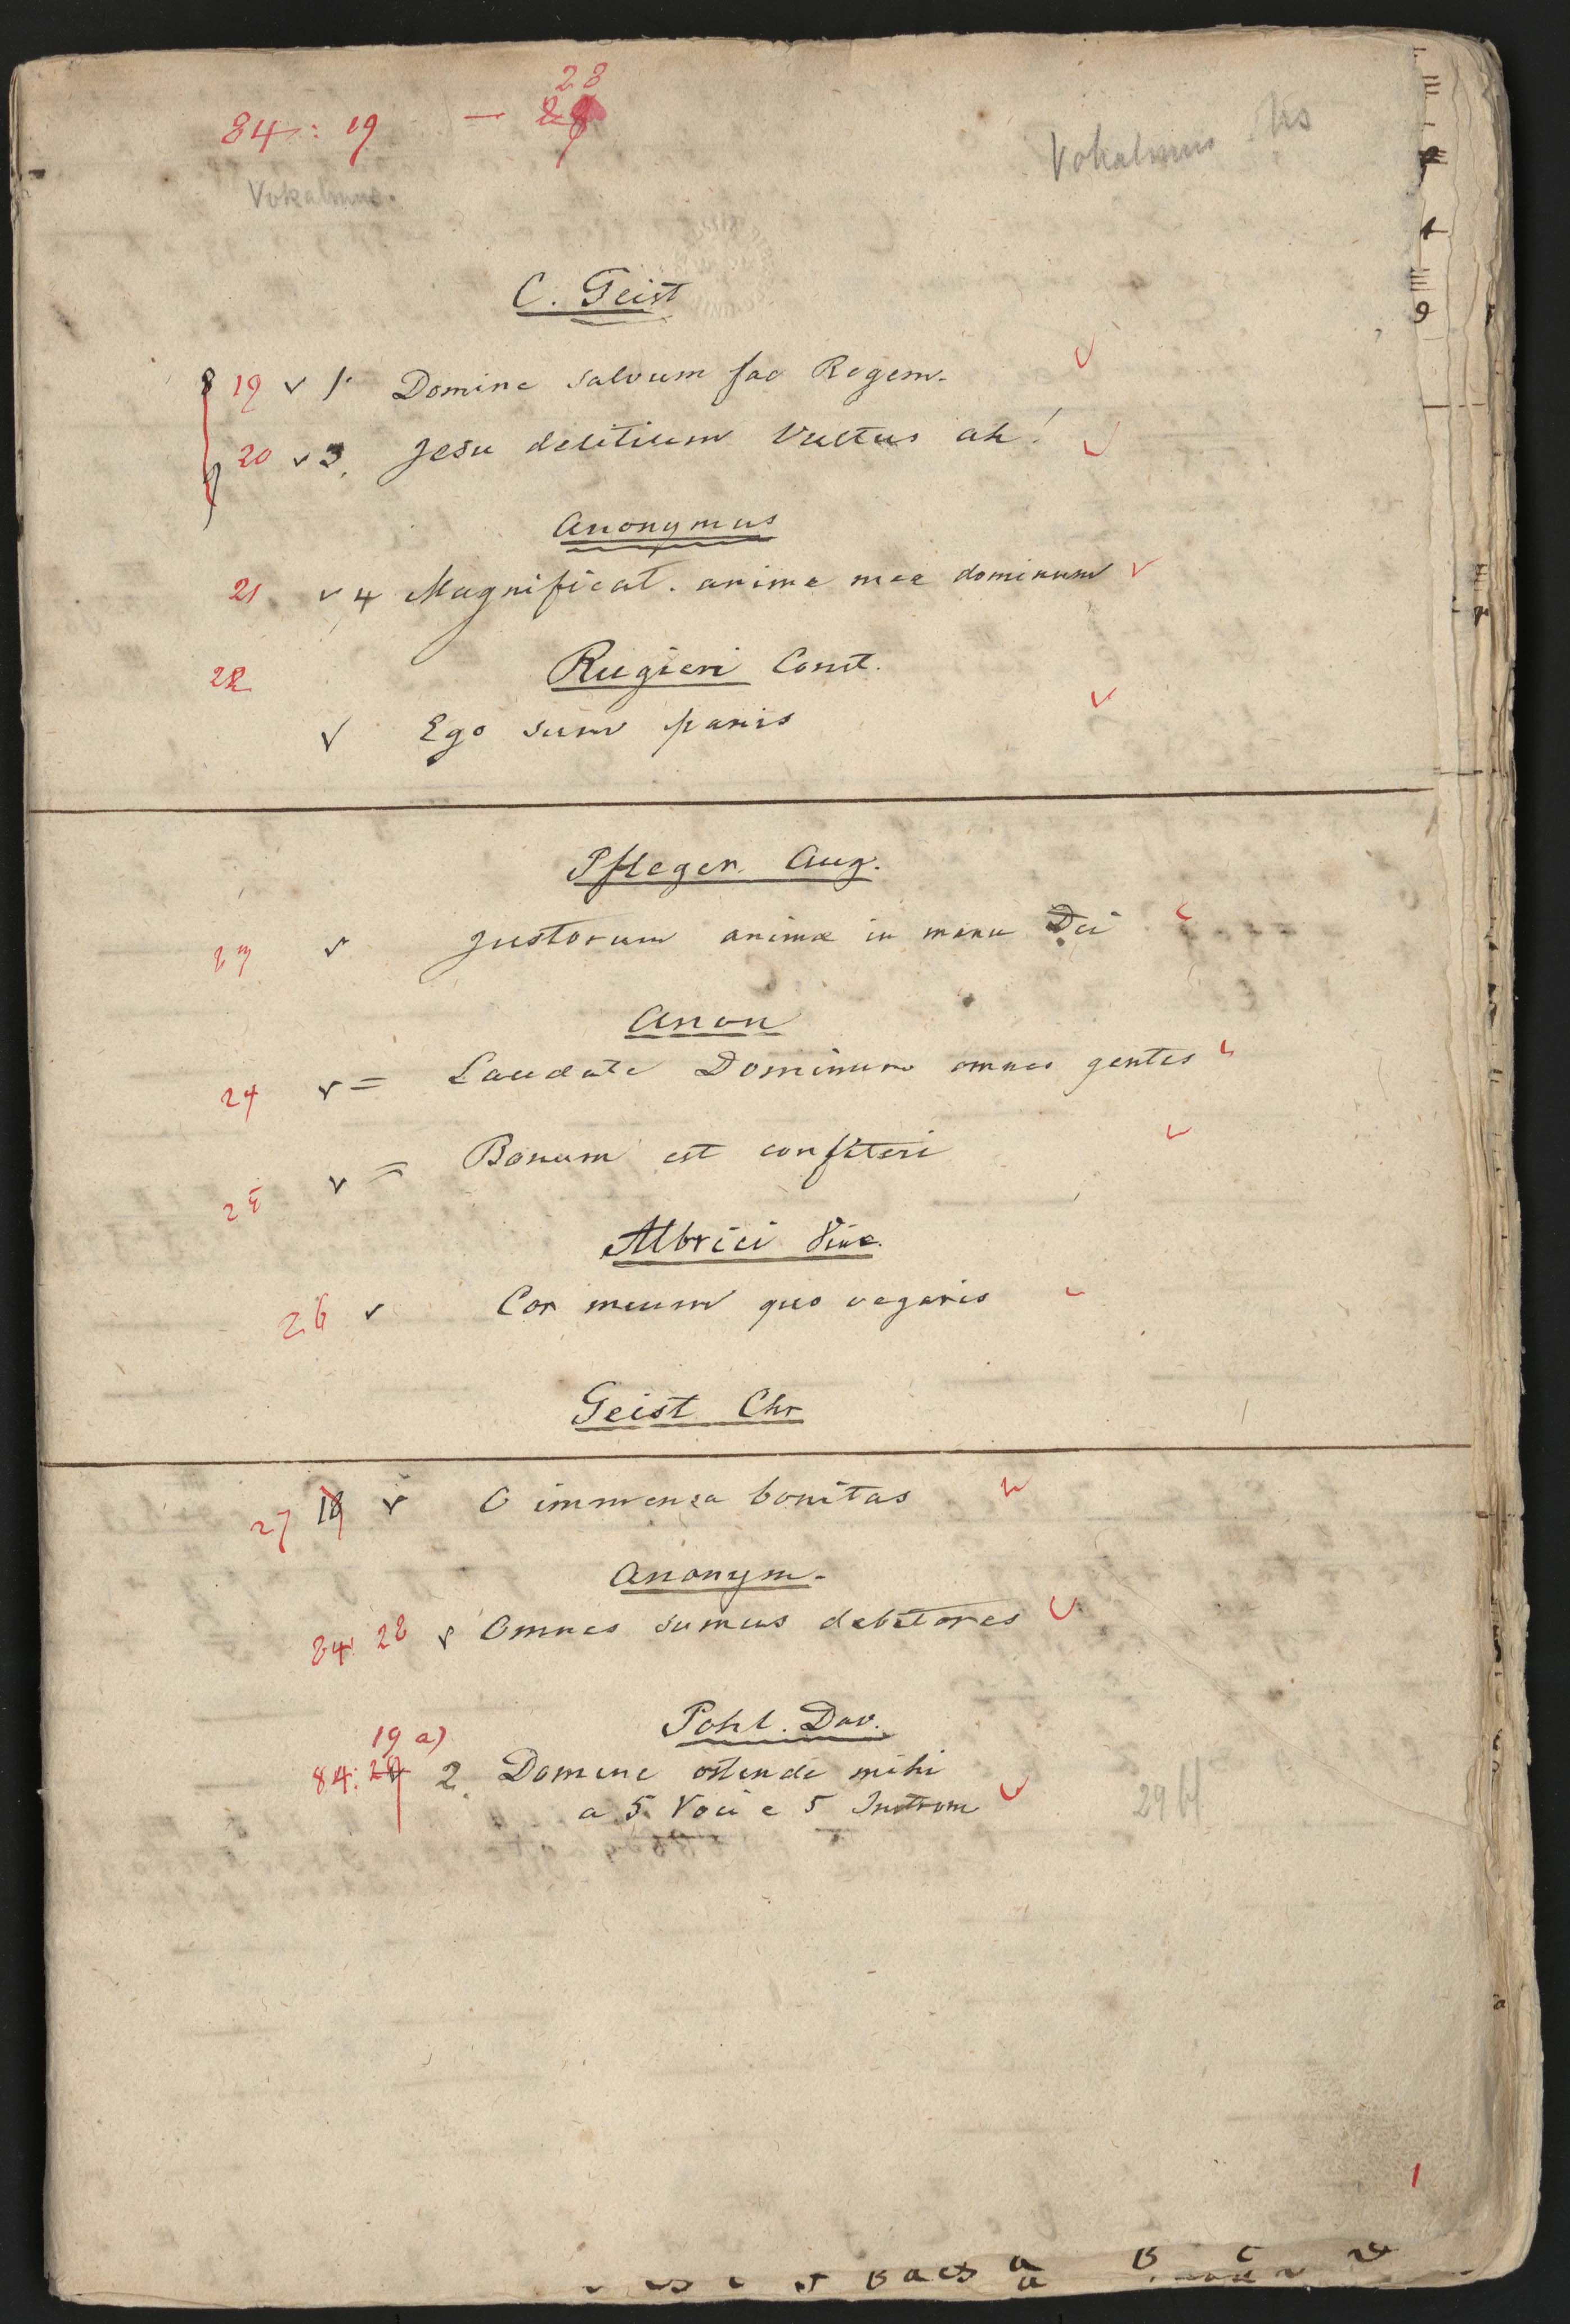 28
84: 19 —
Vokalmus Hs
Vokalmus.
C. Geist
19 v 1. Domine salvum fac Regem.
20 v 3. Jesu delitium Vultus ah!
Anonymus
21 v 4 Magnificat. anima mea dominum
Rugieri Const.
22
v Ego sum panis
Pfleger Aug.
23 v Justorum animæ in manu Dei
Anon
24 v = Laudate Dominum omnes gentes
25 v = Bonum est confiteri
Albrici Vinc.
26 v Cor meum quo vagaris
Geist Chr
27 19 v O immensa bonitas
Anonym.
84: 28 v Omnes sumus debitores
Pohl. Dav.
19 a)
84: 2. Domine ostende mihi
a 5 Voci e 5 Instrom
29 Bl
1